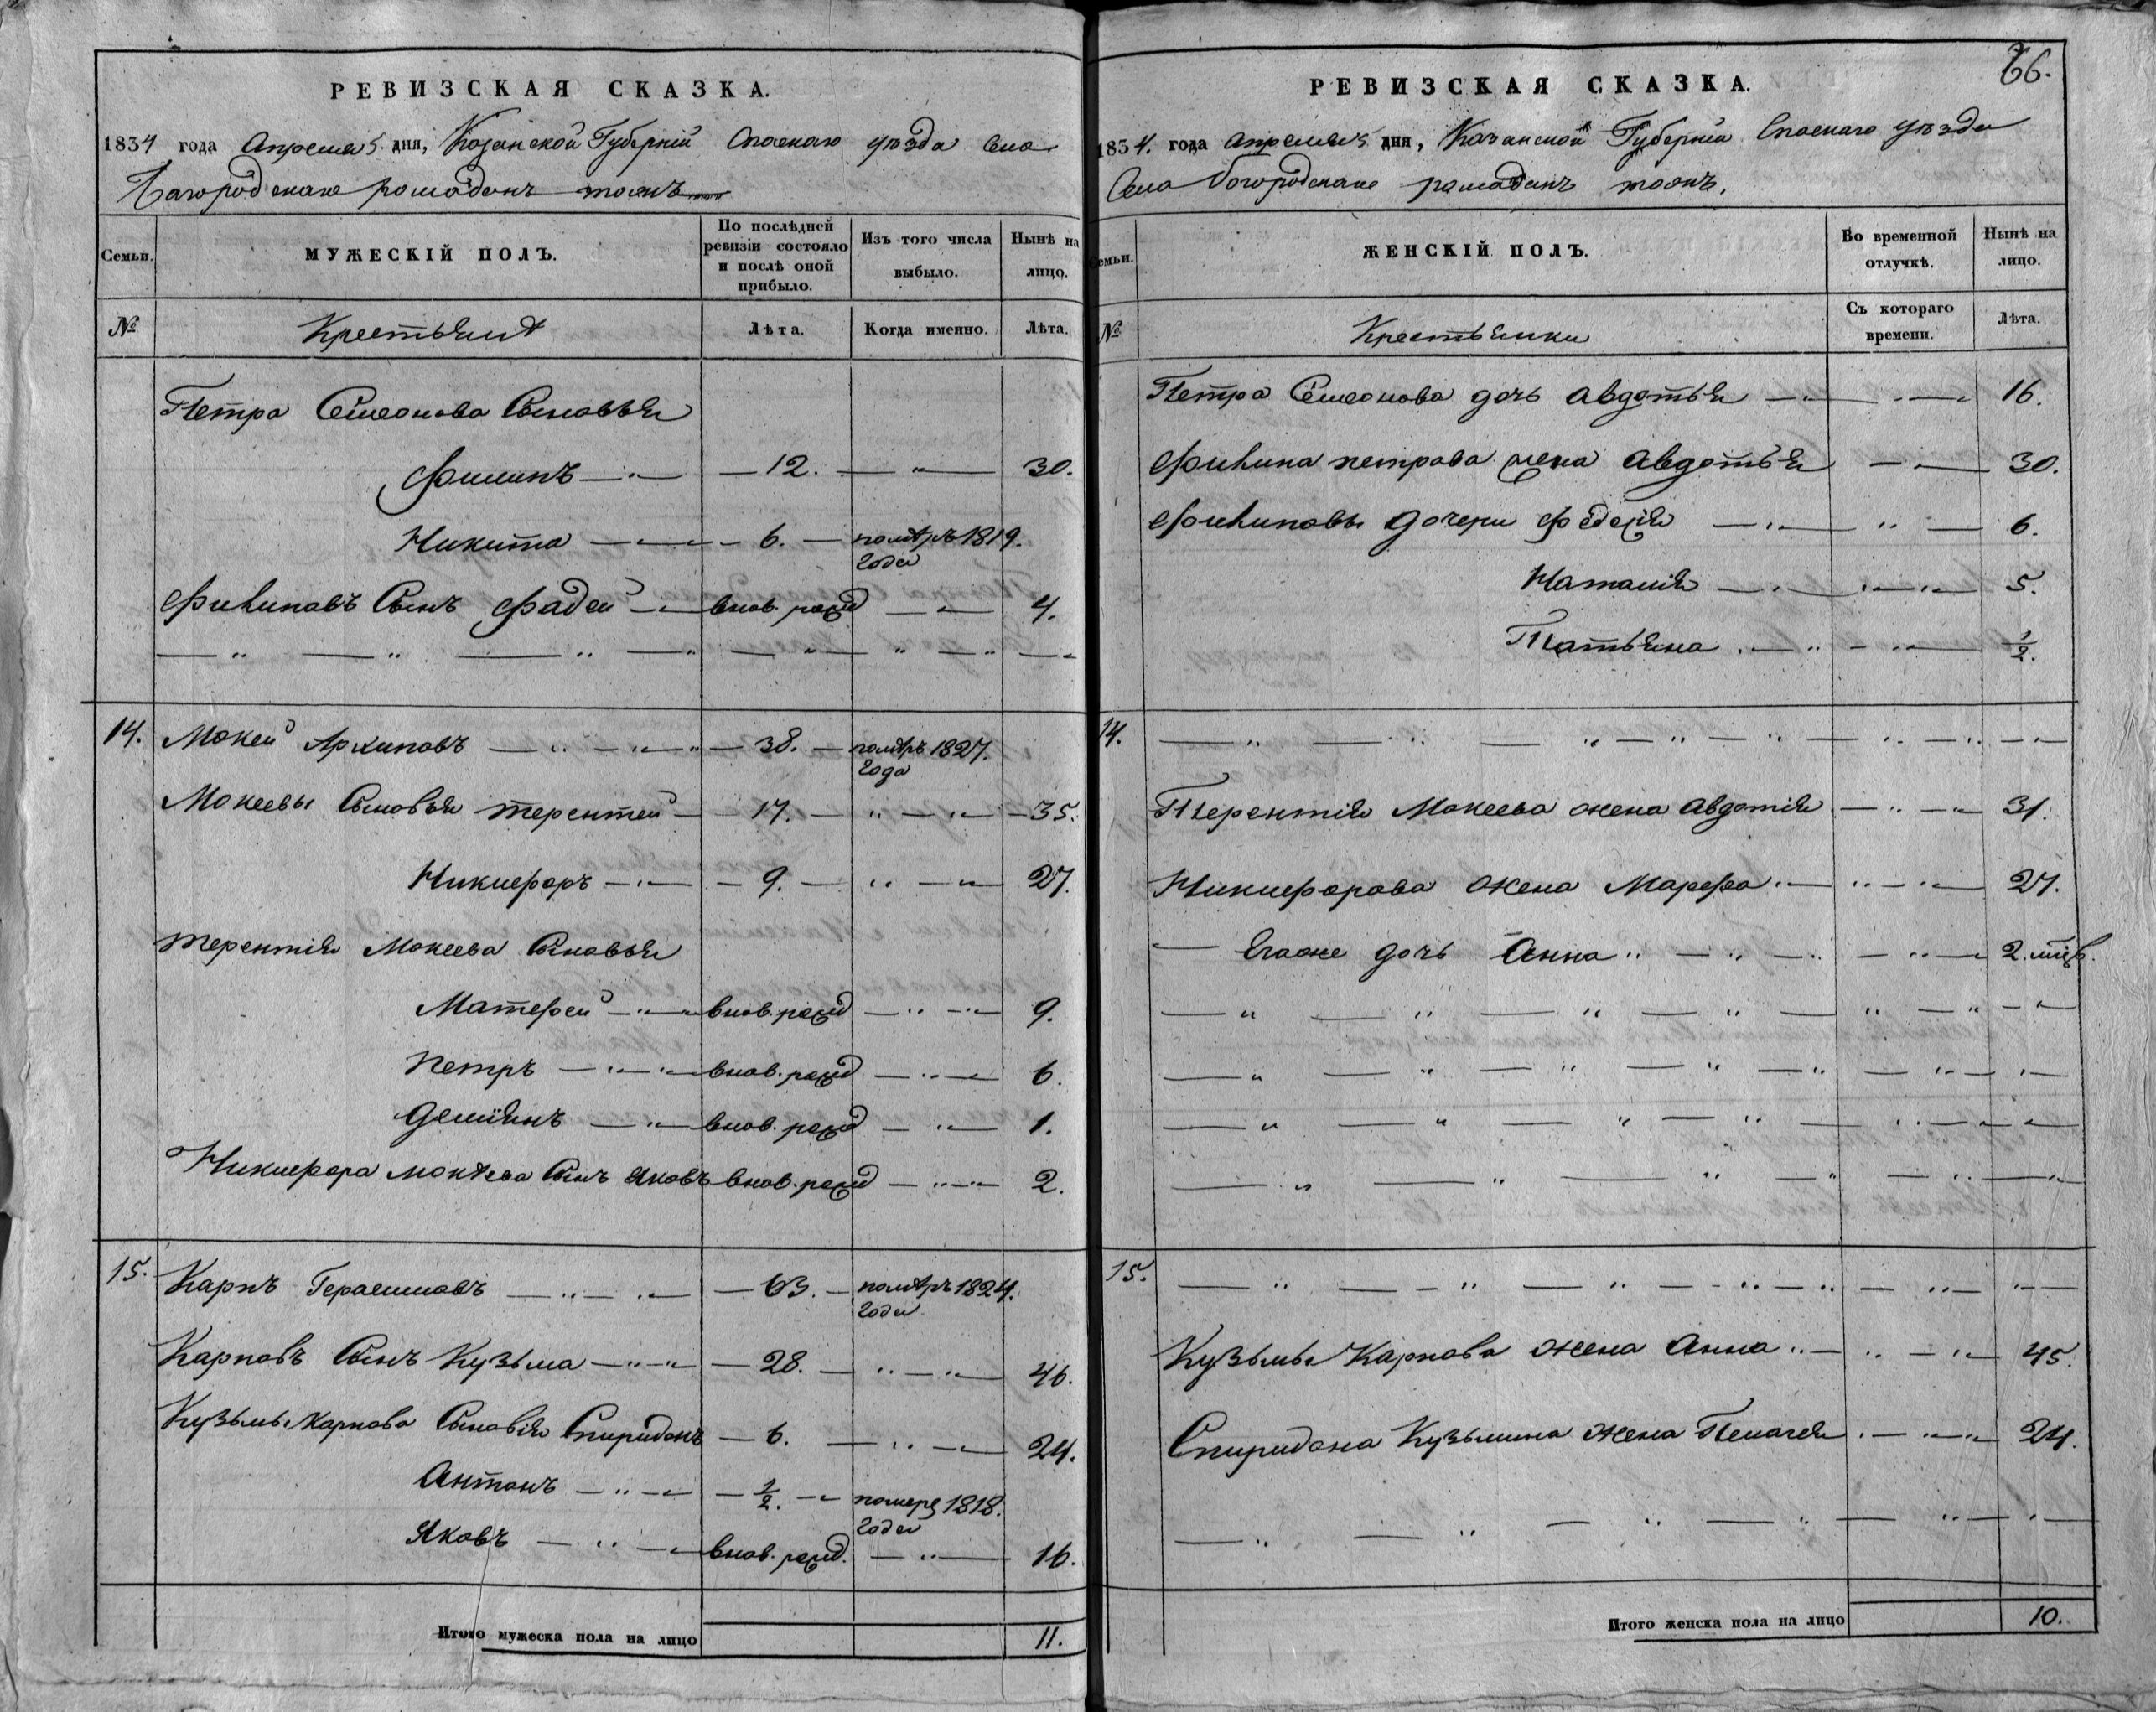 РЕВИЗСКАЯ СКАЗКА.
1834 года Апреля 5 дня, Казанской Губерніи Спаскаго уѣзда Села
Багородскаго рамаданъ тожъ
Семьи. МУЖЕСКІЙ ПОЛЪ. По послѣдней ревизіи состояло и послѣ оной прибыло. Изъ того числа выбыло. Нынѣ на лицо.
№ Крестьянѣ Лѣта. Когда именно. Лѣта.
Петра Семонова Сыновья
Филипъ 12. 30.
Никита 6. помѣръ 1819. года
Филиповъ Сынъ Фадей внов. рожд 4.
14. Мокей Архиповъ 38. помѣръ 1827. года
Мокеевы Сыновья терентей 17. 35.
Никифоръ 9. 27.
терентія Мокеева Сыновья
Матфей внов. рожд 9.
Петръ внов. рожд 6.
демianъ внов. рожд 1.
Никифора мокѣева Сынъ Яковъ внов. рожд 2.
15. Карпъ Герасимовъ 63. помѣръ 1824. года
Карповъ Сынъ Кузьма 28. 46.
Кузьмы Карпова Сыновія Спиридонъ 6. 24.
Антонъ 1/2. померъ 1818. года
Яковъ внов. рожд. 16.
Итого мужеска пола на лицо 11.
66.
РЕВИЗСКАЯ СКАЗКА.
1834. года апреля 5 дня, Казанской Губерніи Спаскаго уѣзда
Села богородскаго рамаданъ тожъ.
Семьи. ЖЕНСКІЙ ПОЛЪ. Во временной отлучкѣ. Нынѣ на лицо.
№ Крестьянки Съ котораго времени. Лѣта.
Петра Семонова дочь авдотья 16.
Филипа петрова жена авдотья 30.
Филиповы дочери Федосія 6.
Наталія 5.
Татьяна 1/2.
14.
Терентія Мокеева жена авдотія 31.
Никифорова жена Марфа 27.
Егоже дочь Анна 2.
15.
Кузьмы Карпова жена Анна 45.
Спиридона Кузьмина жена Пелагея 24.
Итого женска пола на лицо 10.